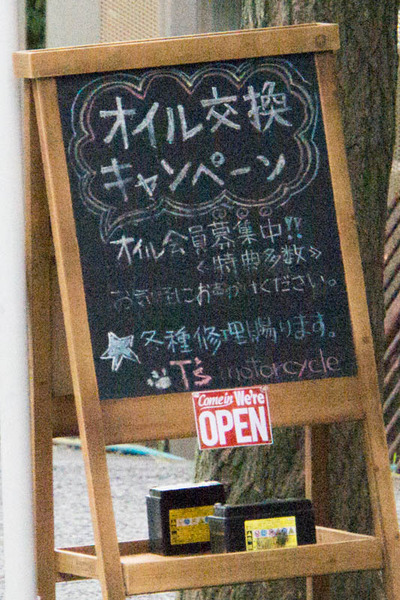 オイル交換
キャンペーン
オイル会員募集中!!
<特典多数≫
お気軽にお声がけください。
各種修理賜ります。
T's motorcycle
"Come in We're
OPEN